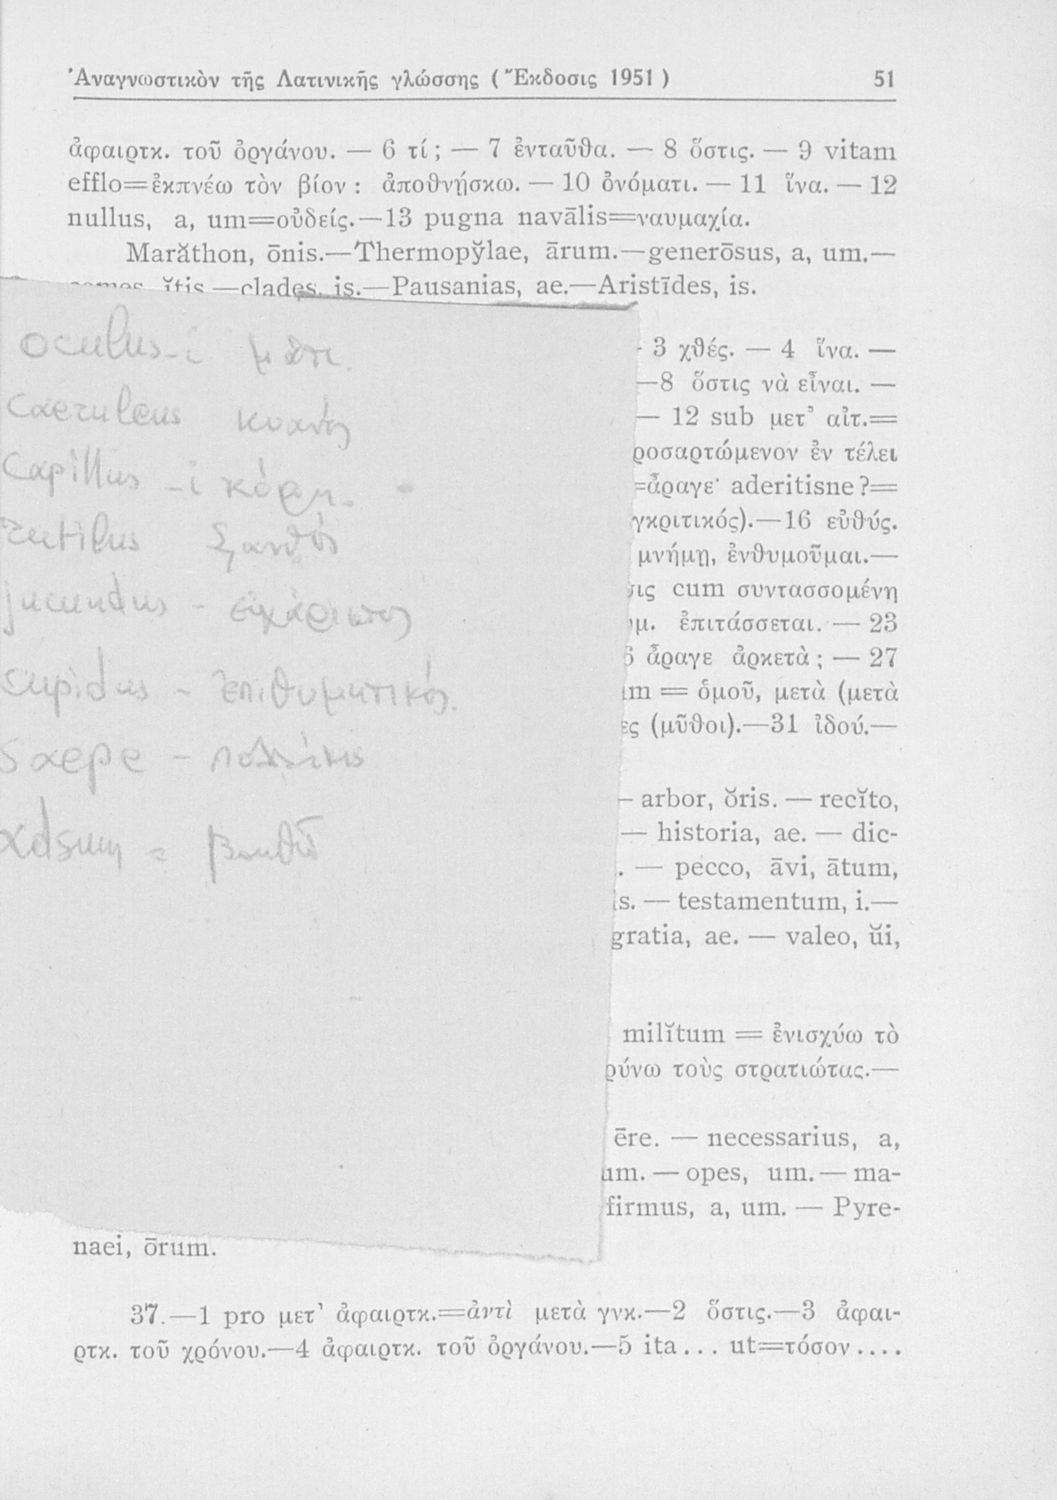 Ἀναγνωστικὸν τῆς Λατινικῆς γλώσσης (Ἔκδοσις 1951) 51
ἀφαιρτκ. τοῦ ὀργάνου. — 6 τί; — 7 ἐνταῦθα. — 8 ὅστις. — 9 vitam
efflo=ἐκπνέω τὸν βίον : ἀποθνῄσκω. — 10 ὀνόματι. — 11 ἵνα. — 12
nullus, a, um=οὐδείς.—13 pugna navālis=ναυμαχία.
Marăthon, ōnis.—Thermopy̆lae, ārum.—generōsus, a, um.—
ĭtis.—clades, is.—Pausanias, ae.—Aristīdes, is.
oculus-i μάτι.
caeruleus κυανός
capillus -i κόμη.
rutilus ξανθός
jucundus - εὐχάριστος
cupidus - ἐπιθυμητικός.
saepe - πολλάκις
adsum = βοηθῶ
- 3 χθές. — 4 ἵνα. —
—8 ὅστις νὰ εἶναι. —
— 12 sub μετ' αἰτ.=
ροσαρτώμενον ἐν τέλει
=ἆραγε· aderitisne?=
γκριτικός).—16 εὐθύς.
μνήμῃ, ἐνθυμοῦμαι.—
ις cum συντασσομένη
μ. ἐπιτάσσεται. — 23
ἆραγε ἀρκετὰ; — 27
um = ὁμοῦ, μετὰ (μετὰ
ες (μῦθοι).—31 ἰδού.—
— arbor, ŏris. — recĭto,
— historia, ae. — dic-
. — pecco, āvi, ātum,
is. — testamentum, i.—
gratia, ae. — valeo, ŭi,
milĭtum = ἐνισχύω τὸ
ρύνω τοὺς στρατιώτας.—
ēre. — necessarius, a,
um. — opes, um. — ma-
firmus, a, um. — Pyre-
naei, ōrum.
37.—1 pro μετ' ἀφαιρτκ.=ἀντὶ μετὰ γνκ.—2 ὅστις.—3 ἀφαι-
ρτκ. τοῦ χρόνου.—4 ἀφαιρτκ. τοῦ ὀργάνου.—5 ita... ut=τόσον....